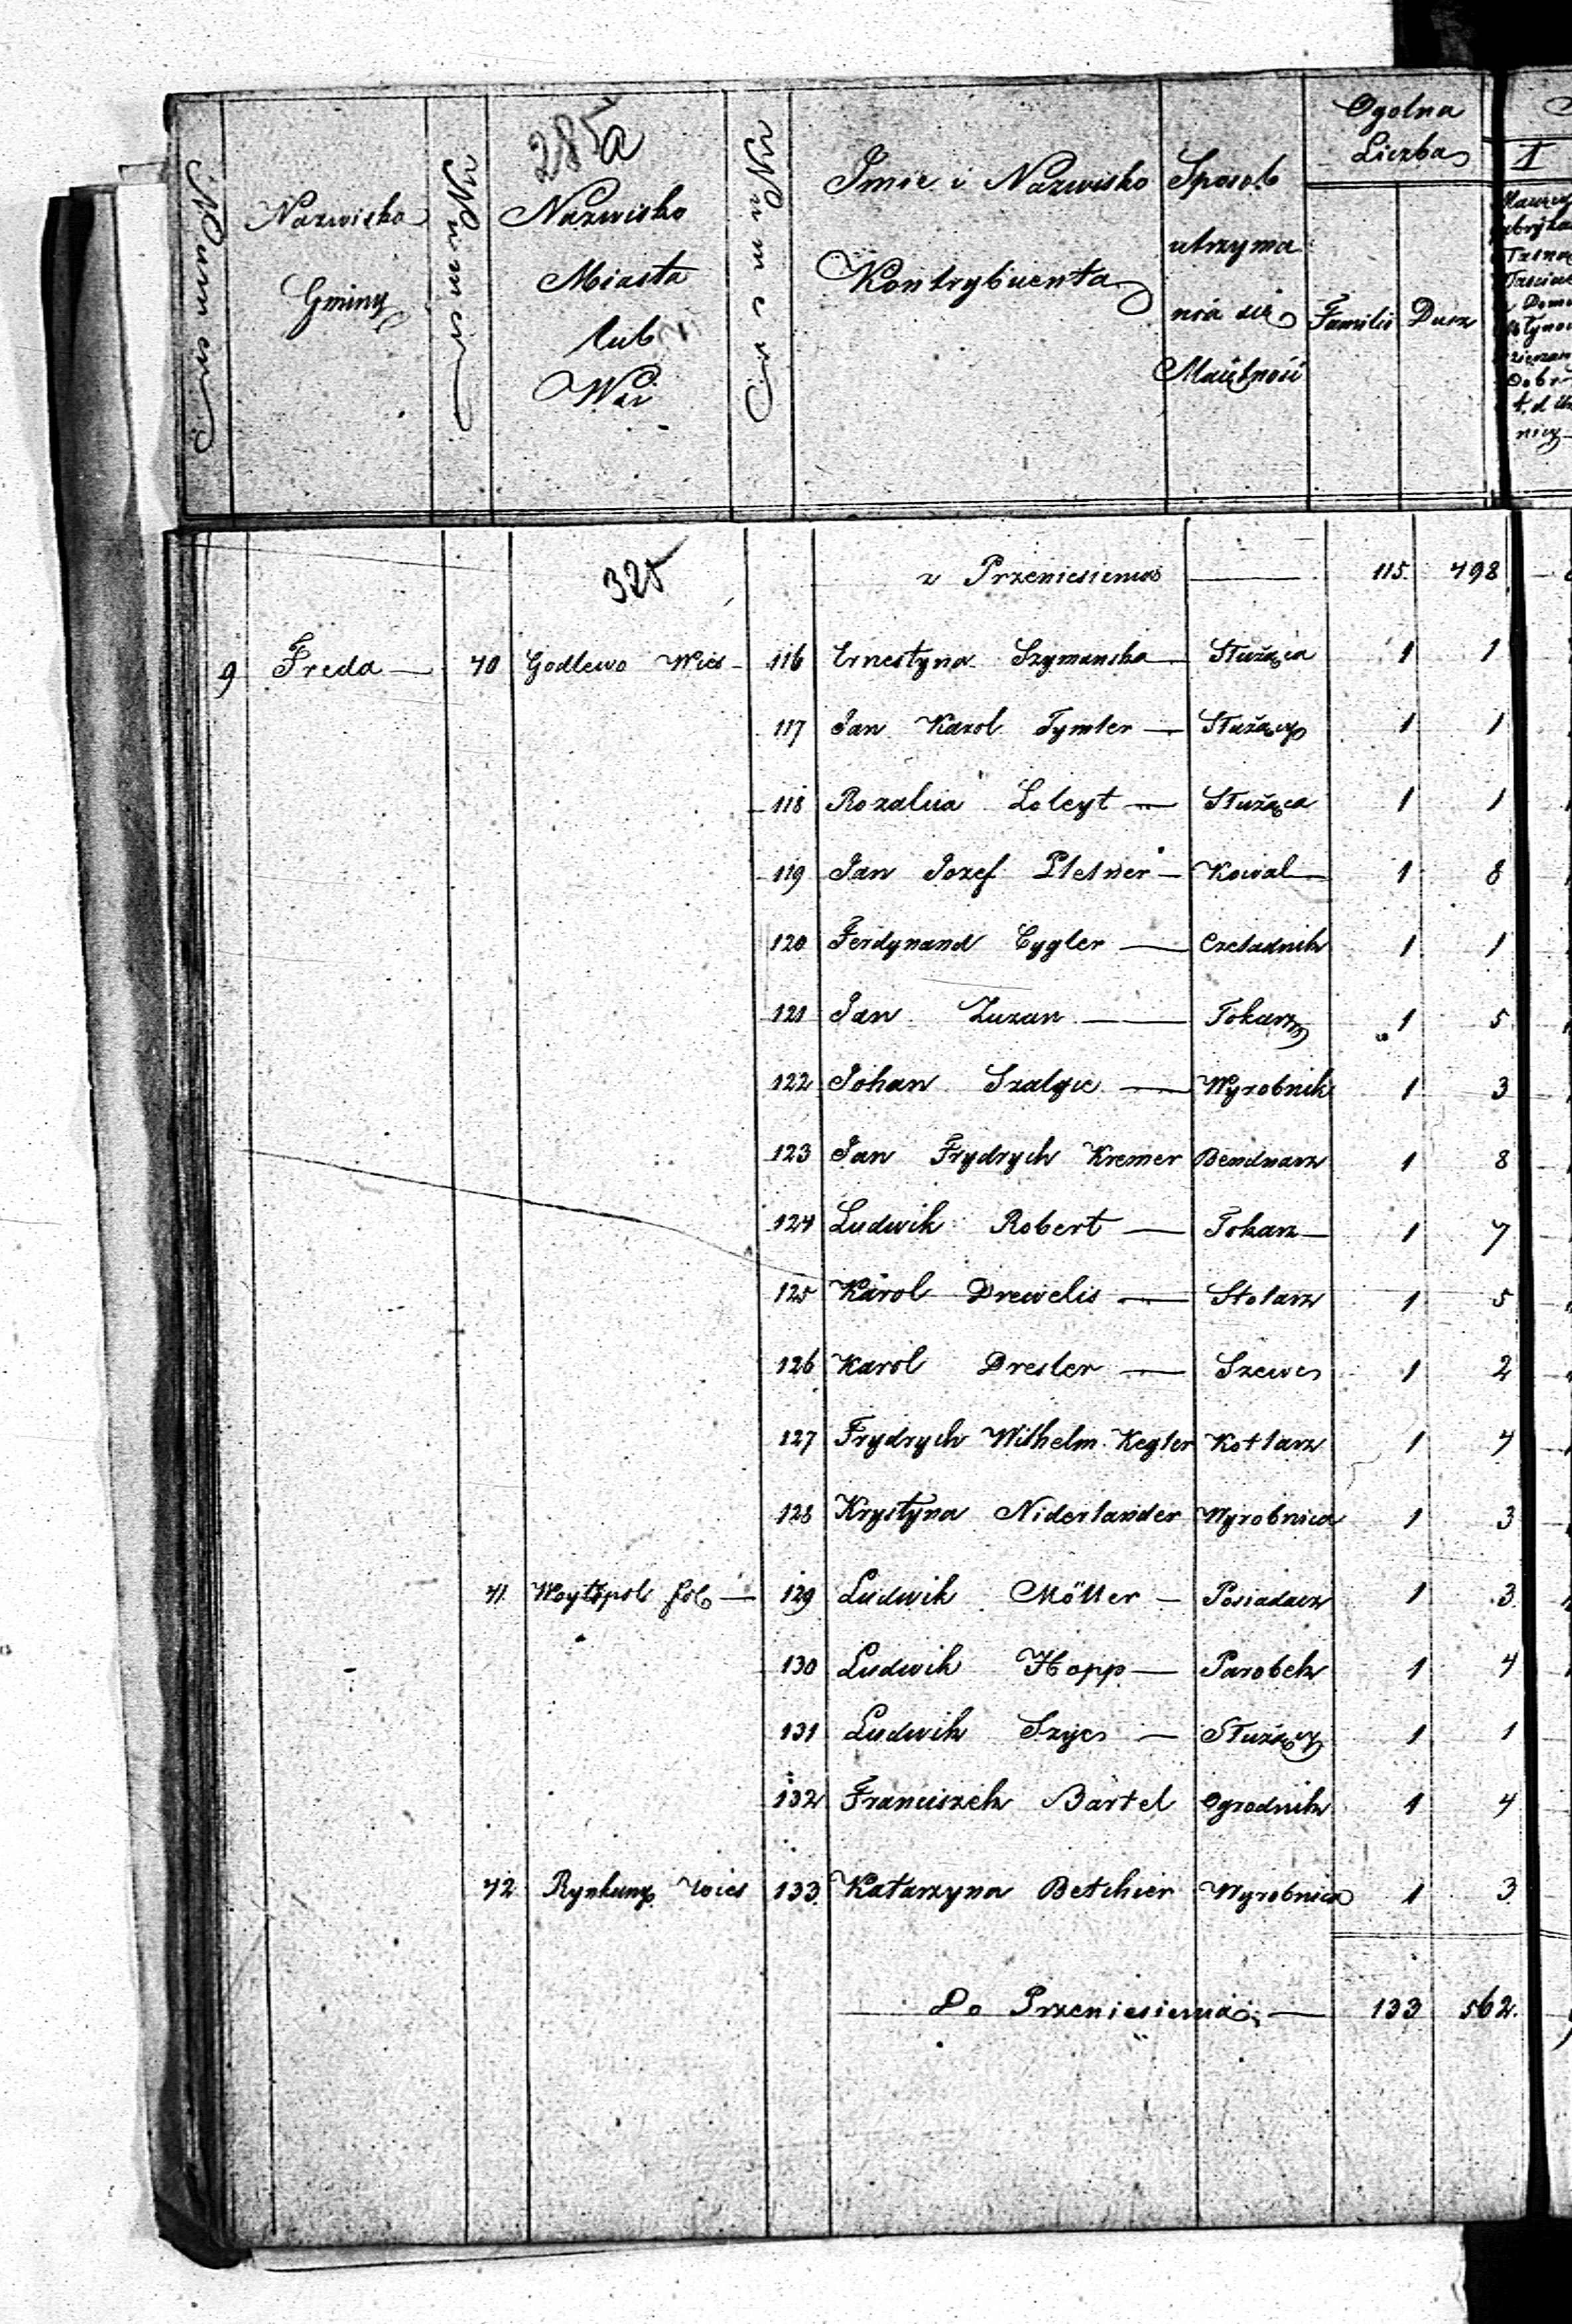 285a
Numer Nazwisko Gminy Numer Nazwisko Miasta lub Wsi Numer Imie i Nazwisko Kontrybuenta Sposob utrzymania się Maiętnosci Ogolna Liczba Familii Dusz 1
325
z Przeniesienia — 115. 498
9 Freda — 40 Godlewo Wies — 116 Ernestyna Szymanska — Służąca 1 1
117 Jan Karol Tymler — Służący 1 1
118 Rozalia Loleyt — Służąca 1 1
119 Jan Jozef Pletner — Kowal — 1 8
120 Ferdynand Cygler — Czeladnik 1 1
121 Jan Zuzan — Tokarz 1 5
122 Johan Szalgie — Wyrobnik 1 3
123 Jan Frydrych Kremer Bendnarz 1 8
124 Ludwik Robert — Tokarz — 1 7
125 Karol Drewelis — Stolarz 1 5
126 Karol Dresler — Szewc 1 2
127 Frydrych Wilhelm Kegler Kotlarz 1 4
128 Krystyna Niderlander Wyrobnica 1 3
41 Woytopol fol — 129 Ludwik Möller — Posiadacz 1 3
130 Ludwik Hopp — Parobek 1 4
131 Ludwik Szyc — Służący 1 1
132 Franciszek Bartel Ogrodnik 1 4
42 Rynkuny Wies 133 Katarzyna Betchier Wyrobnica 1 3
Do Przeniesienia — 133 562.